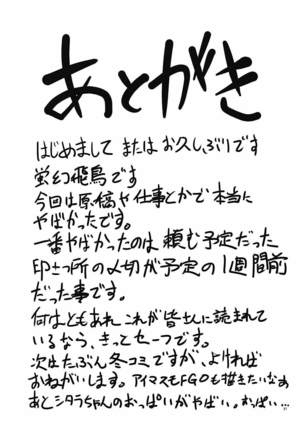 あとがき
はじめまして またはお久しぶりです
蛍幻飛鳥です
今回は原稿や仕事とかで本当に
やばかったです。
一番やばかったのは、頼む予定だった
印刷所の〆切が予定の1週間前
だった事です。
何はともあれ これが皆さんに読まれて
いるなら、きっとセーフです。
次はたぶん冬コミですが、よければ
おねがいします。アイマスもFGOも描きたいなぁ
あとシタラちゃんのおっぱいがやばい。おっぱい…